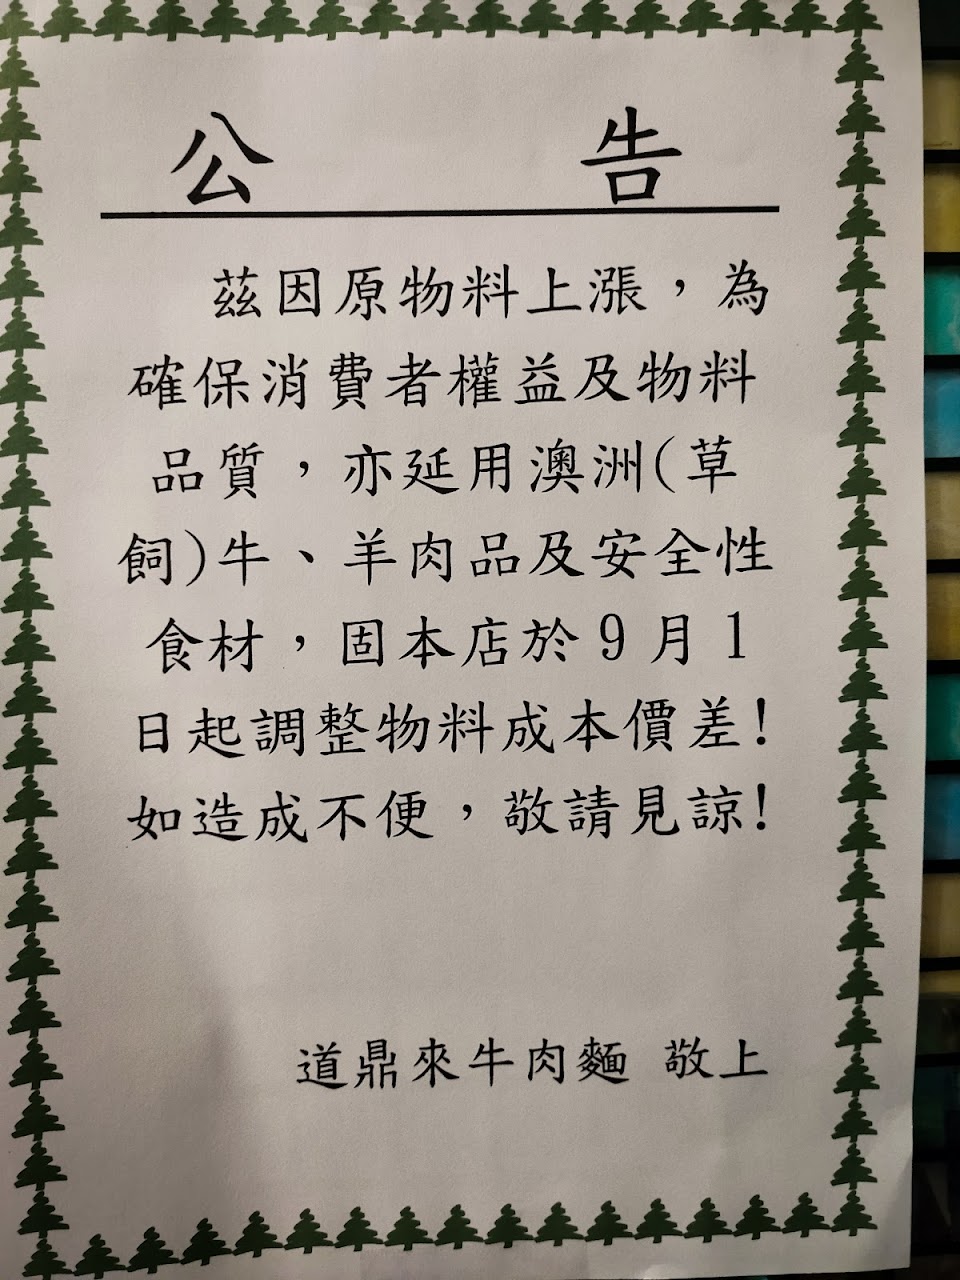 公告
茲因原物料上漲，為
確保消費者權益及物料
品質，亦延用澳洲(草
飼)牛、羊肉品及安全性
食材，固本店於9月1
日起調整物料成本價差!
如造成不便，敬請見諒!
道鼎來牛肉麵 敬上